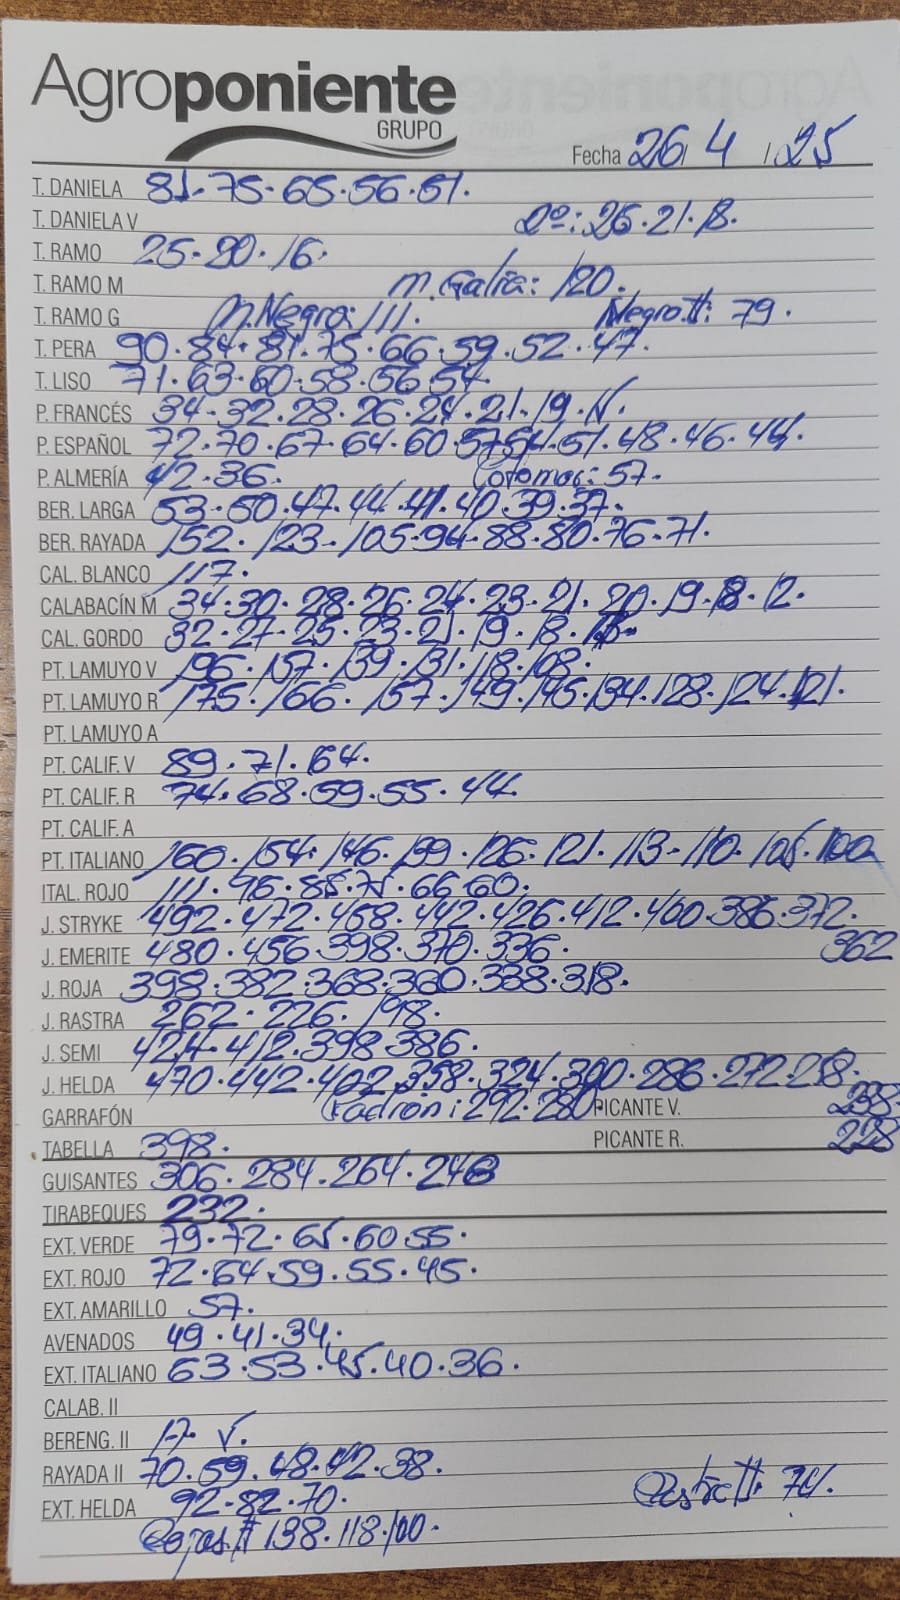 Agroponiente
GRUPO
Fecha 26/ 4 /25
T. DANIELA 81-75-65.56.51.
T. DANIELA V 2º: 26.21.18.
T. RAMO 25-20.16.
T. RAMO M M. Galia: 120.
T. RAMO G M. Negro: 111. Negro II: 79.
T. PERA 90.84.81.75.66.59.52.47.
T. LISO 71.63.60.58.56.54.
P. FRANCÉS 34-32.28.26.24.21.19.N.
P. ESPAÑOL 72.70.67.64.60.57.54.51.48.46.44.
P. ALMERÍA 42.36. Coromor: 57.
BER. LARGA 53-50.47.44.41.40.39.37.
BER. RAYADA 152.123-105.94-88.80.76.71.
CAL. BLANCO 117.
CALABACÍN M 34.30.28.26.24.23.21.20.19.18.12.
CAL. GORDO 32.27.25.23.21.19.18.
PT. LAMUYO V 196.157.139.131.118.108.
PT. LAMUYO R 175.166.157.149.145.134.128.124.121.
PT. LAMUYO A
PT. CALIF. V 89.71.64.
PT. CALIF. R 74.68.59.55.44.
PT. CALIF. A
PT. ITALIANO 160.154.146.139.126.121.113-110.105.100
ITAL. ROJO 111.96.85.75.66 60.
J. STRYKE 492.472.458.442.426.412.400.386.372.
J. EMERITE 480.456.398.370.336. 362
J. ROJA 398.382.368.360.338.318.
J. RASTRA 262.226.198.
J. SEMI 424.412.398.386.
J. HELDA 470.442.402.358.324.300.286.272.258.
GARRAFÓN Padrón: 292.280 PICANTE V. 238
TABELLA 398. PICANTE R. 228
GUISANTES 306.284.264.248
TIRABEQUES 232.
EXT. VERDE 79.72.65.60.55.
EXT. ROJO 72.64.59.55.45.
EXT. AMARILLO 57.
AVENADOS 49.41.34.
EXT. ITALIANO 63.53.45.40.36.
CALAB. II
BERENG. II 17. V.
RAYADA II 70.59.48.42.38.
EXT. HELDA 92-82.70. Rastra II: 74.
Rojas II 138.118.100.